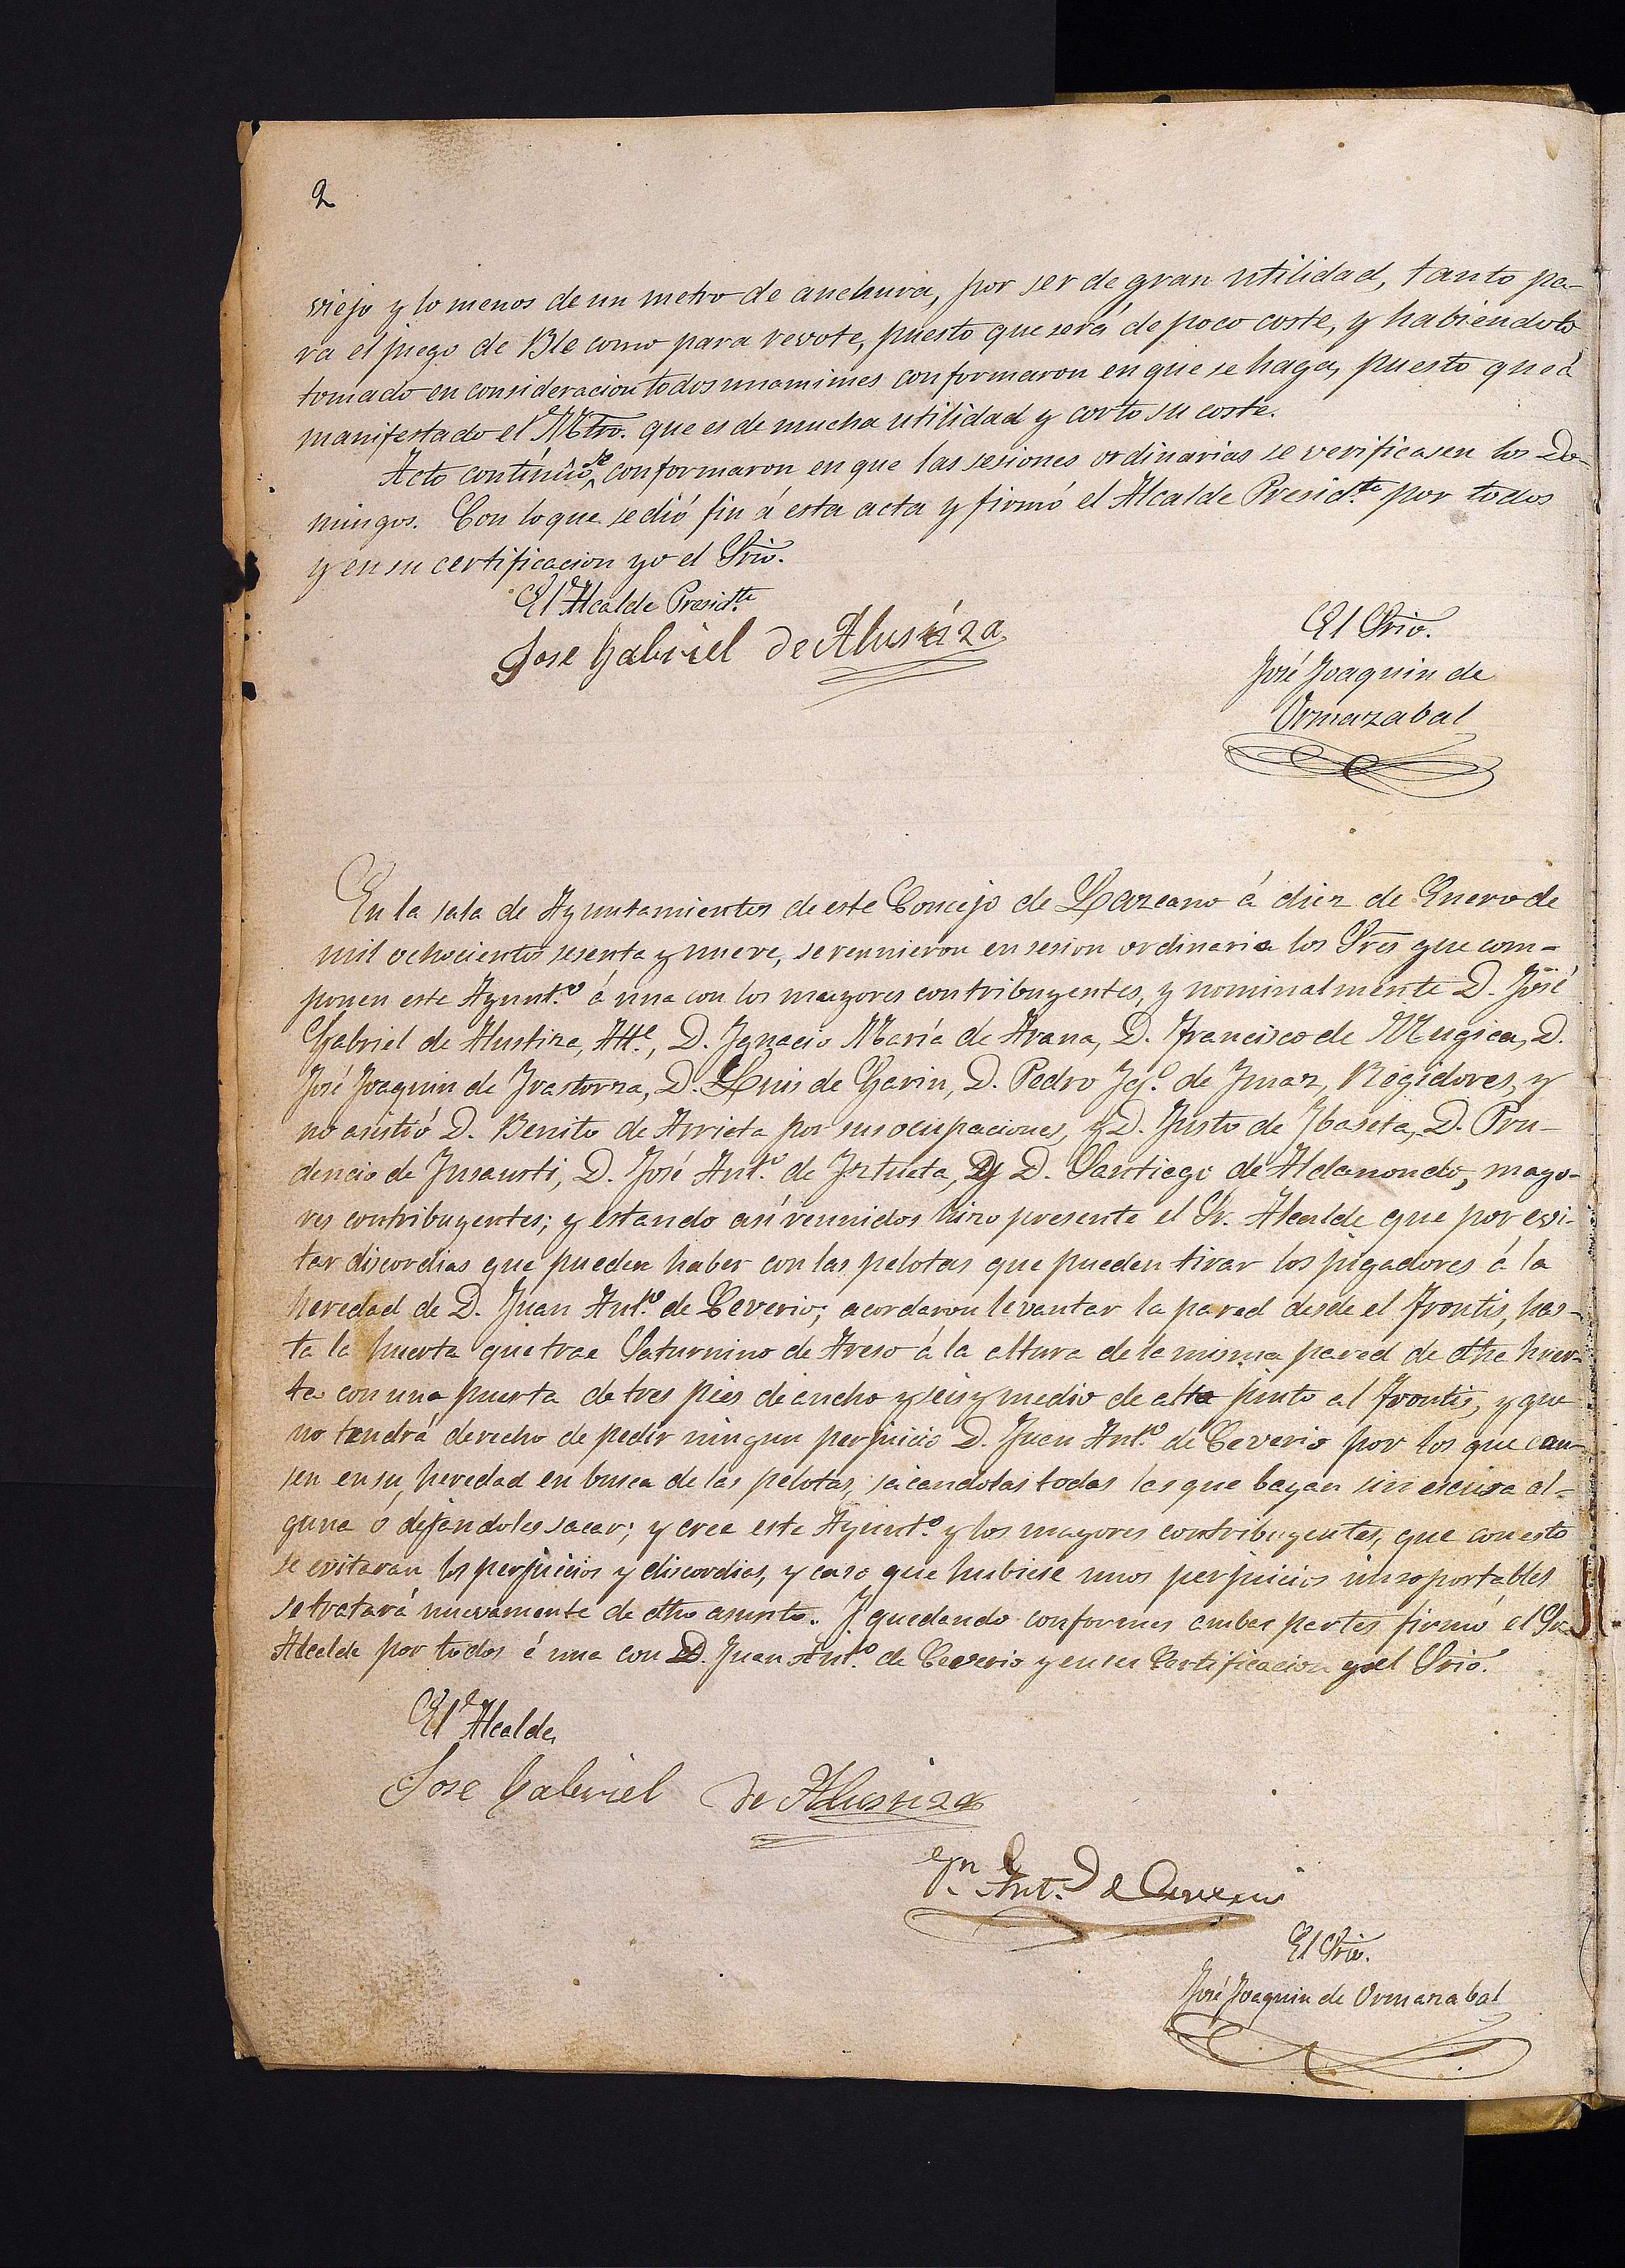 2
viejo y lo menos de un metro de anchura, por ser de gran utilidad, tanto pa-
ra el juego de Ble como para revote, puesto que será de poco coste, y habiendolo
tomado en consideracion todos unamimes conformaron en que se haga, puesto que á
manifestado el Mtro. que es de mucha utilidad y corto su coste.
Acto contínúo, se conformaron en que las sesiones ordinarias se verificasen los Do-
mingos. Con lo que se dió fin á esta acta y firmó el Alcalde Presid.te por todos
y en su certificacion yo el Srio.
El Alcalde Presid.te
Jose Gabriel de Alustiza
El Srio.
José Joaquin de
Ormazabal
En la sala de Ayuntamientos de este Concejo de Lazcano á diez de Enero de
mil ochocientos sesenta y nueve, se reunieron en sesion ordinaria los Sres que com-
ponen este Ayunt.o á una con los mayores contribuyentes, y nominalmente D. José
Gabriel de Alustiza, Alt.e, D. Ygnacio María de Arana, D. Francisco de Mugica, D.
José Joaquin de Yrastorza, D. Luis de Garin, D. Pedro Ygo. de Ymaz, Regidores, y
no asistió D. Benito de Arrieta por sus ocupaciones, y D. Justo de Ybaseta, D. Pru-
dencio de Ynsausti, D. José Ant.o de Yztueta, y D. Santiago de Aldanondo, mayo-
res contribuyentes; y estando así reunidos hizo presente el Sr. Alcalde que por evi-
tar discordias que pueden haber con las pelotas que pueden tirar los jugadores á la
heredad de D. Juan Ant.o de Ceverio; acordaron levantar la pared desde el Frontis, has-
ta la huerta que trae Saturnino de Areso á la altura de la misma pared de dha huer-
ta con una puerta de tres pies de ancho y seis y medio de alta junto al Frontis, y que
no tendrá derecho de pedir ningun perjuicio D. Juan Ant.o de Ceverio por los que cau-
sen en su heredad en busca de las pelotas, sacandolas todas las que bayan sin escusa al-
guna ó dejándoles sacar; y cree este Ayunt.o y los mayores contribuyentes, que con esto
se evitaran los perjuicios y discordias, y caso que hubiese unos perjuicios insoportables
se tratará nuevamente de dho asunto. Y quedando conformes ambas partes firmó el Sr.
Alcalde por todos á una con D. Juan Ant.o de Ceverio y en su Certificacion yo el Srio.
El Alcalde
Jose Gabriel de Alustiza
Jn Ant.o de Ceverio
El Srio.
José Joaquin de Ormazabal